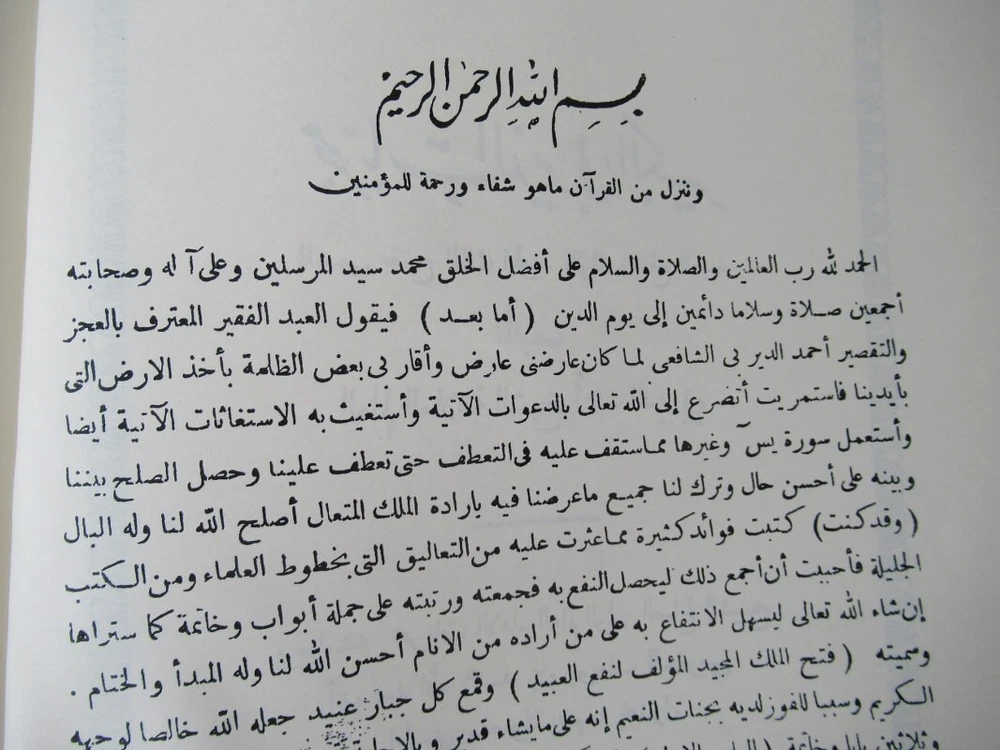 بسم الله الرحمن الرحيم
وننزل من القرآن ماهو شفاء ورحمة للمؤمنين
الحمد لله رب العالمين والصلاة والسلام على أفضل الخلق محمد سيد المرسلين وعلى آله وصحابته
أجمعين صلاة وسلاما دائمين إلى يوم الدين (أما بعد) فيقول العبد الفقير المعترف بالعجز
والتقصير أحمد الديربى الشافعى لما كان عارضنى عارض وأقاربى بعض الظلمة بأخذ الارض التى
بأيدينا فاستمريت أتضرع إلى الله تعالى بالدعوات الآتية وأستغيث به الاستغاثات الآتية أيضا
وأستعمل سورة يس وغيرها مما ستقف عليه فى التعطف حتى تعطف علينا وحصل الصلح بيننا
وبينه على أحسن حال وترك لنا جميع ماعرضنا فيه بارادة الملك المتعال أصلح الله لنا وله البال
(وقد كنت) كتبت فوائد كثيرة مما عثرت عليه من التعاليق التى بخطوط العلماء ومن الكتب
الجليلة فأحببت أن أجمع ذلك ليحصل النفع به فجمعته ورتبته على جملة أبواب وخاتمة كما ستراها
إن شاء الله تعالى ليسهل الانتفاع به على من أراده من الانام أحسن الله لنا وله المبدأ والختام .
وسميته (فتح الملك المجيد المؤلف لنفع العبيد) وقمع كل جبار عنيد جعله الله خالصا لوجهه
الكريم وسببا للفوز لديه بجنات النعيم إنه على مايشاء قدير وبالاجابة
وثلاثين بابا وخاتمة